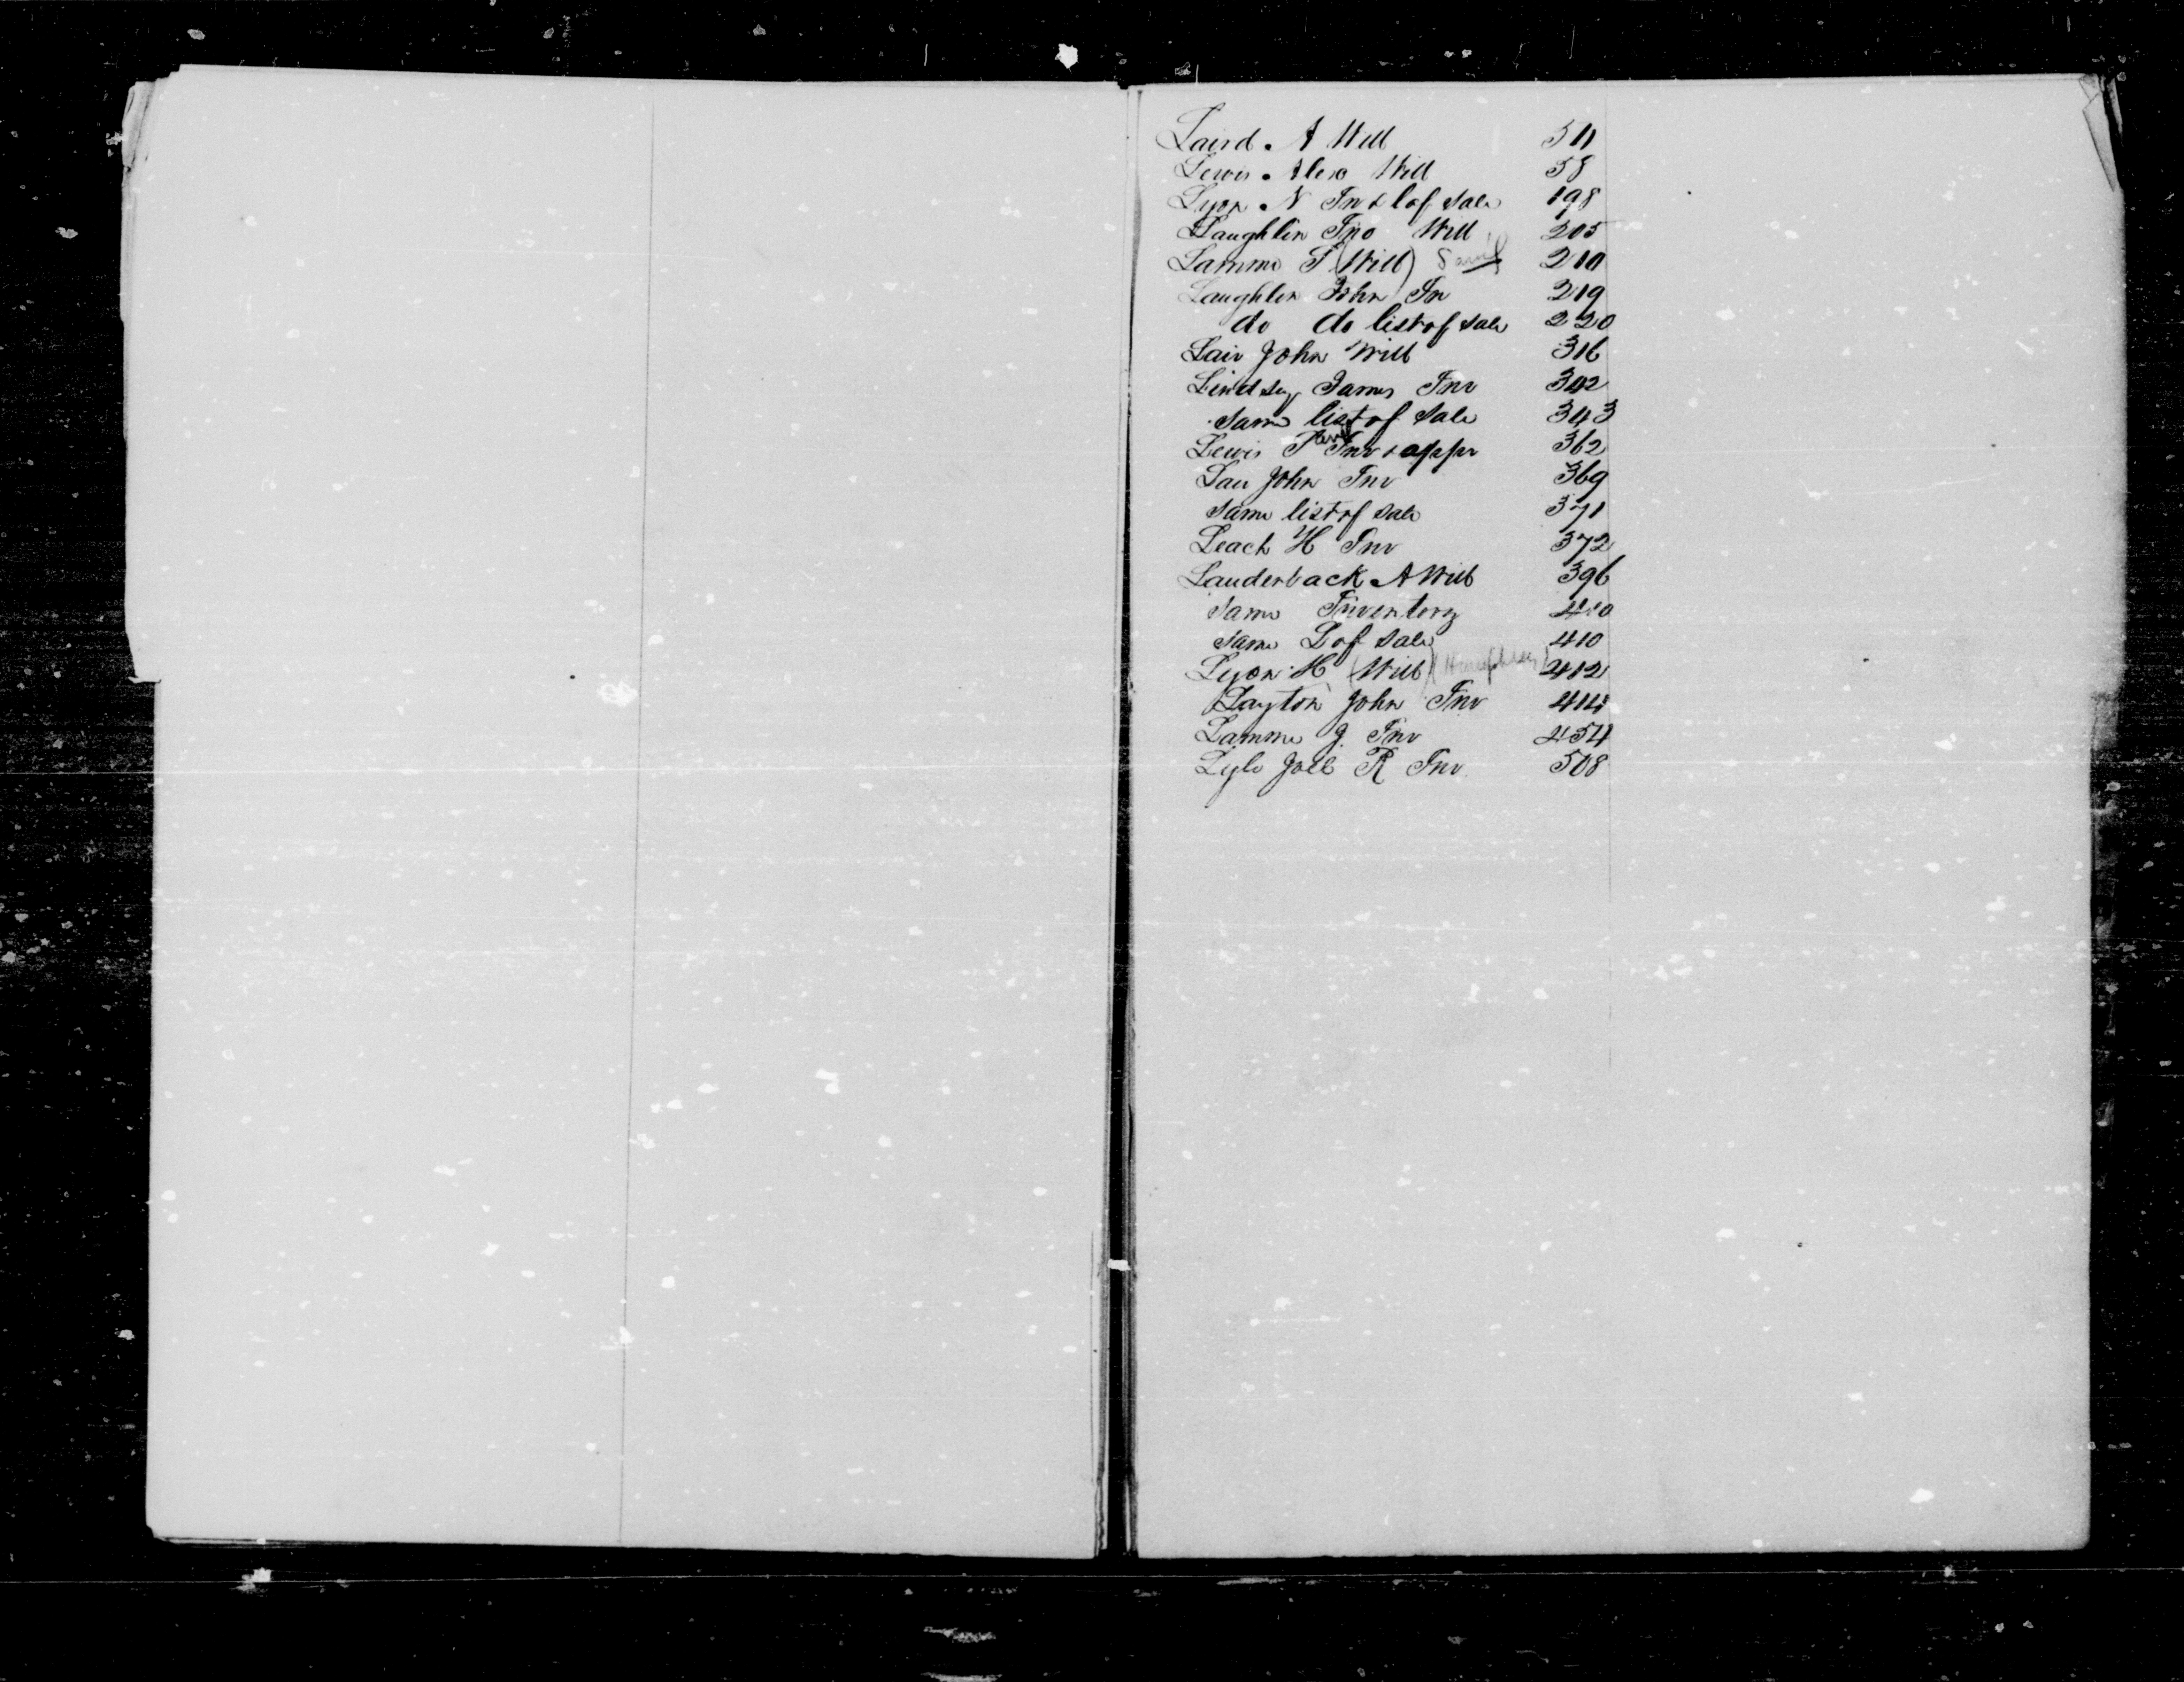 Laird A Will 511
Lewis Alexo Will 58
Lyon N Inv & l of sale 198
Laughlin Jno Will 205
Lamme S (Will) Saml 210
Laughlin John In 219
do do list of sale 220
Lair John Will 316
Lindsey James Inv 342
Same list of Sale 343
Lewis T Inv & appr 362
Lair John Inv 369
Same list of sale 371
Leach H Inv 372
Lauderback A Will 396
Same Inventory 410
same L of sale 410
Lyon H (Will) (Humphrey) 412
Layton John Inv 414
Lamme J. Inv 454
Lyle Joel R Inv 508